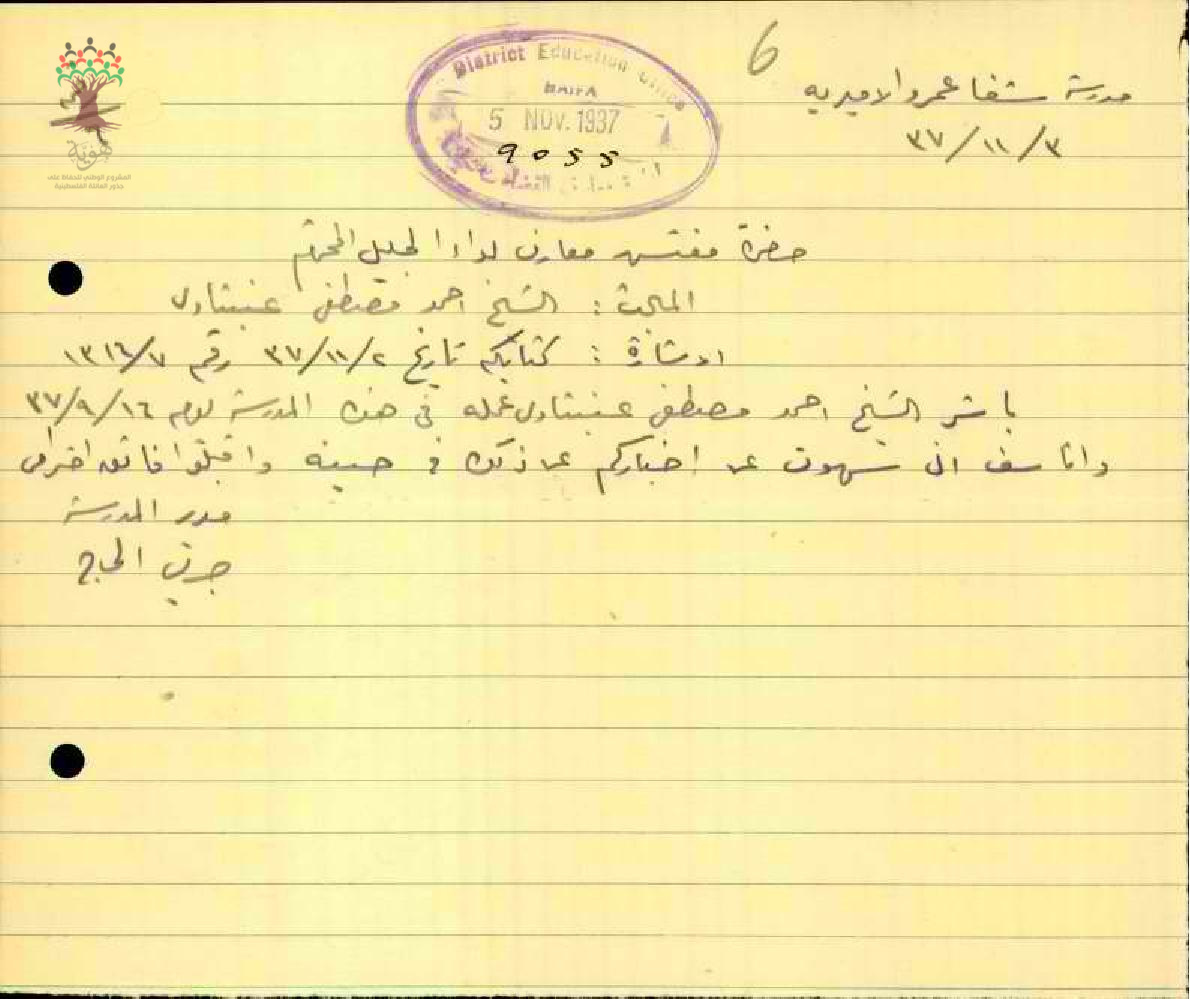 6
مدرسة شفا عمرو الاميرية
٣٧/١١/٣
District Education Office
HAIFA
5 NOV. 1937
9055
هوية
المشروع الوطني للحفاظ على
جذور العائلة الفلسطينية
حضرة مفتش معارف لواء الجليل المحترم
المبحث : الشيخ احمد مصطفى عنبتاوي
الاشارة : كتابكم تاريخ ٣٧/١١/٢ رقم ١٣١٦/٧
باشر الشيخ احمد مصطفى عنبتاوي عمله في هذه المدرسة يوم ٣٧/٩/١٦
واناسف اني سهوت عن اخباركم عن ذلك في حينه واقبلوا فائق احترامي
مدير المدرسة
الحاج